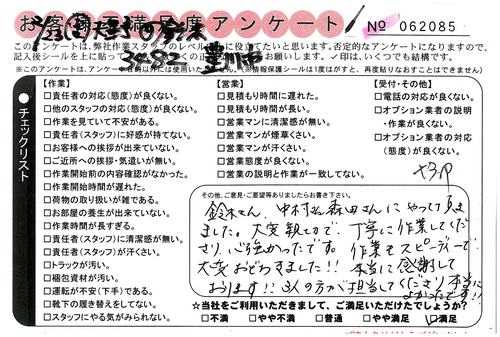 お客様満足度アンケート
No 062085
このアンケートは、弊社作業スタッフのレベル
に役立てたいと思います。否定的なアンケートになりますので、
記入後シールを上に
お願いします。✓印は、いくつでも結構です。
※このアンケートは、アンケート
以外には使用いたしません。(※情報保護シールは1度はがすと、再度貼りなおすことはできません)
3482 豊川市
チェックリスト
【作業】
□責任者の対応(態度)が良くない。
□他のスタッフの対応(態度)が良くない。
□作業を見ていて不安がある。
□責任者(スタッフ)に好感が持てない。
□お客様への挨拶が出来ていない。
□ご近所への挨拶・気遣いが無い。
□作業開始前の内容確認がなかった。
□作業開始時間が遅れた。
□荷物の取り扱いが雑である。
□お部屋の養生が出来ていない。
□作業時間が長すぎる。
□責任者(スタッフ)に清潔感が無い。
□責任者(スタッフ)が汗くさい。
□トラックが汚い。
□梱包資材が汚い。
□運転が不安(下手)である。
□靴下の履き替えをしてない。
□スタッフにやる気がみられない。
【営業】
□見積もり時間に遅れた。
□見積もり時間が長い。
□営業マンに清潔感が無い。
□営業マンが煙草くさい。
□営業マンが汗くさい。
□営業態度が良くない。
□営業の説明と作業が一致してない。
【受付・その他】
□電話の対応が良くない。
□オプション業者の説明
・作業が良くない。
□オプション業者の対応
(態度)が良くない。
その他、ご意見・ご要望等ありましたらお書き下さい。
鈴木さん、中村さん森田さんにやって頂き
ました。大変親切で、丁寧に作業してくだ
さり、心強かったです。作業もスピーディーで、
大変おどろきました!! 本当に感謝して
おります!! 3人の方が担当してくださり本当に
よかったです!!
☆当社をご利用いただきまして、ご満足いただけたでしょうか?
□不満 □やや不満 □普通 □やや満足 ☑満足